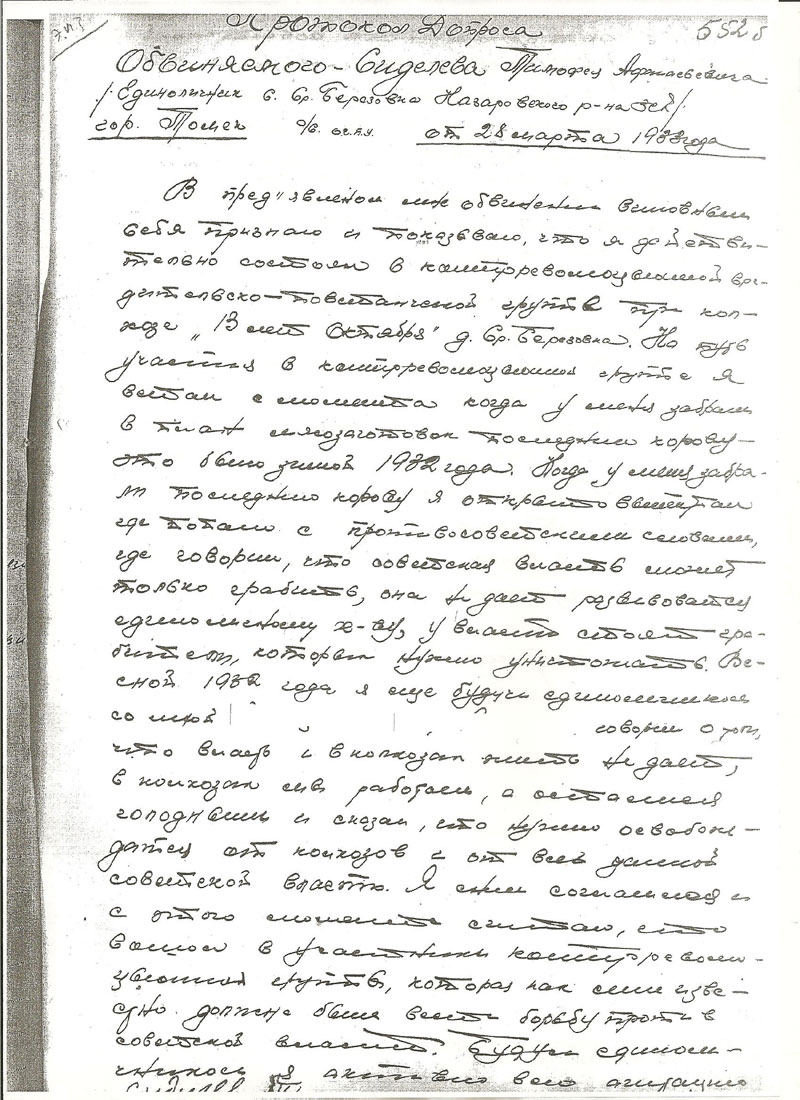 Протокол Допроса
Обвиняемого - Сиделева Тимофея Афанасьевича
/Единоличник с. Ср. Березовка Назаровского р-на ЗСК/
гор. Томск о/с. о.г.п.у. от 28 марта 1933 года
В пред'явленом мне обвинении виновным
себя признаю и показываю, что я действи-
тельно состоял в контрреволюционной вре-
дительско-повстанческой группе при кол-
хозе „13 лет Октября" д. Ср. Березовка. На путь
участия в контрреволюционной группе я
встал с момента когда у меня забрали
в план мясозаготовок последнюю корову-
это было зимой 1932 года. Когда у меня забра-
ли последнюю корову я открыто выступал
где попало с противосоветскими словами,
где говорил, что советская власть может
только грабить, она не дает развиваться
единоличному х-ву, у власти стоят гра-
бители, которых нужно уничтожать. Ве-
сной 1932 года я еще будучи единоличником
со мной говорил о том,
что власть и в колхозах жить не дает,
в колхозах мы работаем, а остаемся
голодными и сказал, что нужно освобож-
даться от колхозов и от всей данной
советской власти. Я с ним согласился и
с этого момента считаю, что
вошел в участники контрреволю-
ционной группы, которая как мне изве-
стно должна была вести борьбу против
советской власти. Будучи единолич-
ником я активно вел агитацию